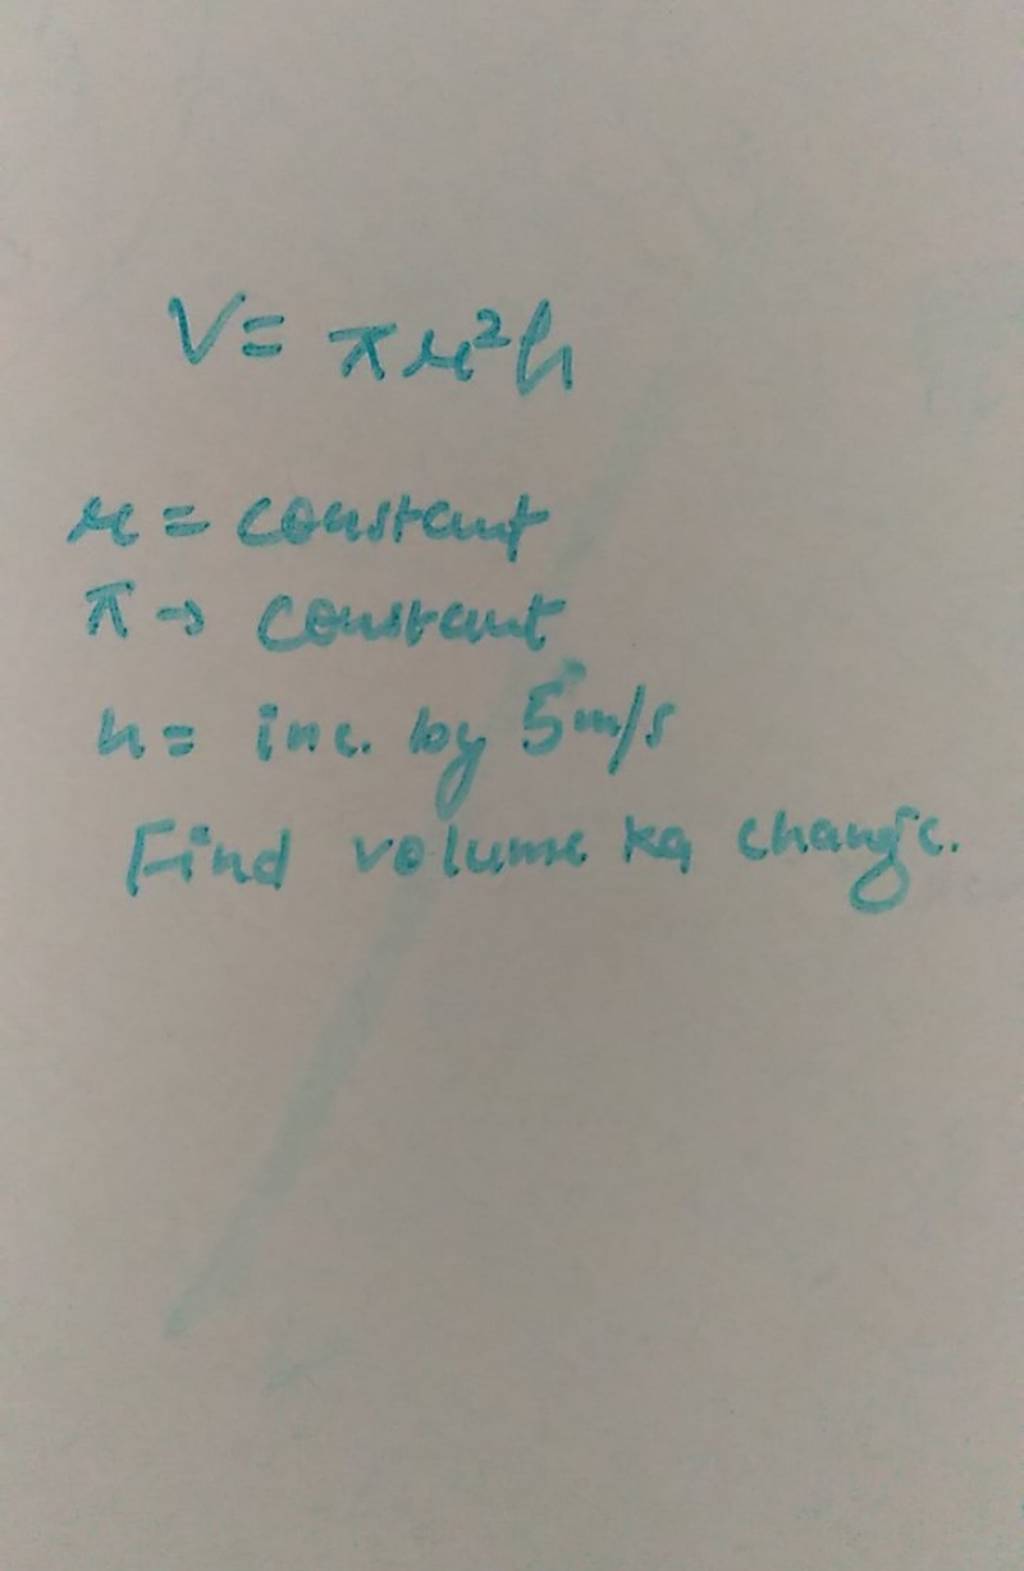 V = πr²h
r = constant
π → constant
h = inc. by 5 m/s
Find volume ka change.